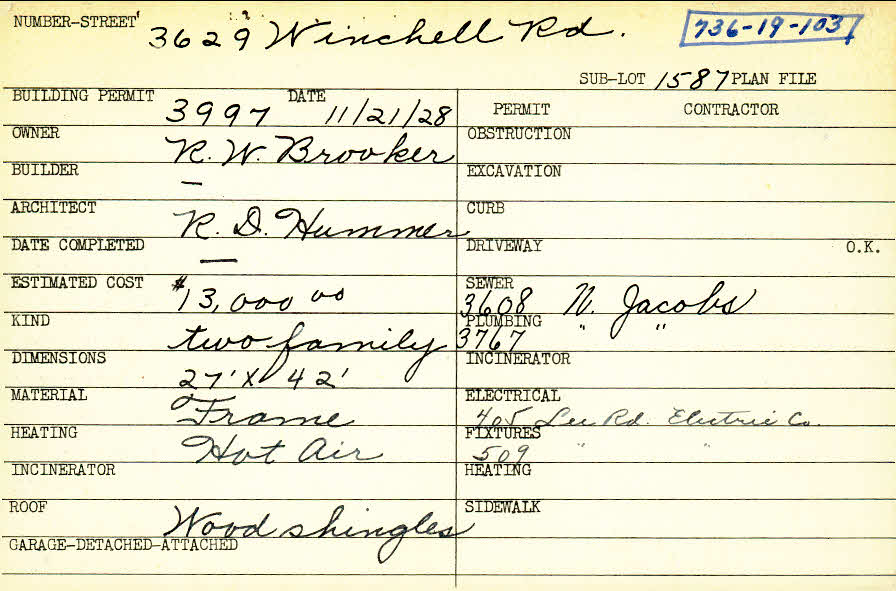 NUMBER-STREET 3629 Winchell Rd. 736-19-103
SUB-LOT 1587 PLAN FILE
BUILDING PERMIT 3997 DATE 11/21/28 PERMIT CONTRACTOR
OWNER R. W. Brooker OBSTRUCTION
BUILDER — EXCAVATION
ARCHITECT R. D. Hummer CURB
DATE COMPLETED — DRIVEWAY O.K.
ESTIMATED COST $13,000 00 SEWER 3608 N. Jacobs
KIND two family PLUMBING 3767 " "
DIMENSIONS 27' X 42' INCINERATOR
MATERIAL Frame ELECTRICAL 405 Lee Rd. Electric Co.
HEATING Hot Air FIXTURES 509 " "
INCINERATOR HEATING
ROOF Wood shingles SIDEWALK
GARAGE-DETACHED-ATTACHED